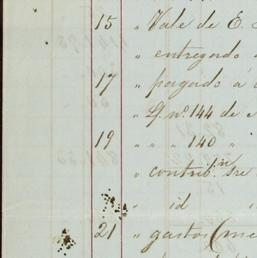 15 " Vale de E.
" entregado
17 " pagado á
" Lj. nº 144 de
19 " " " 140 "
" contribⁿ sre
" id "
21 " gastos (me